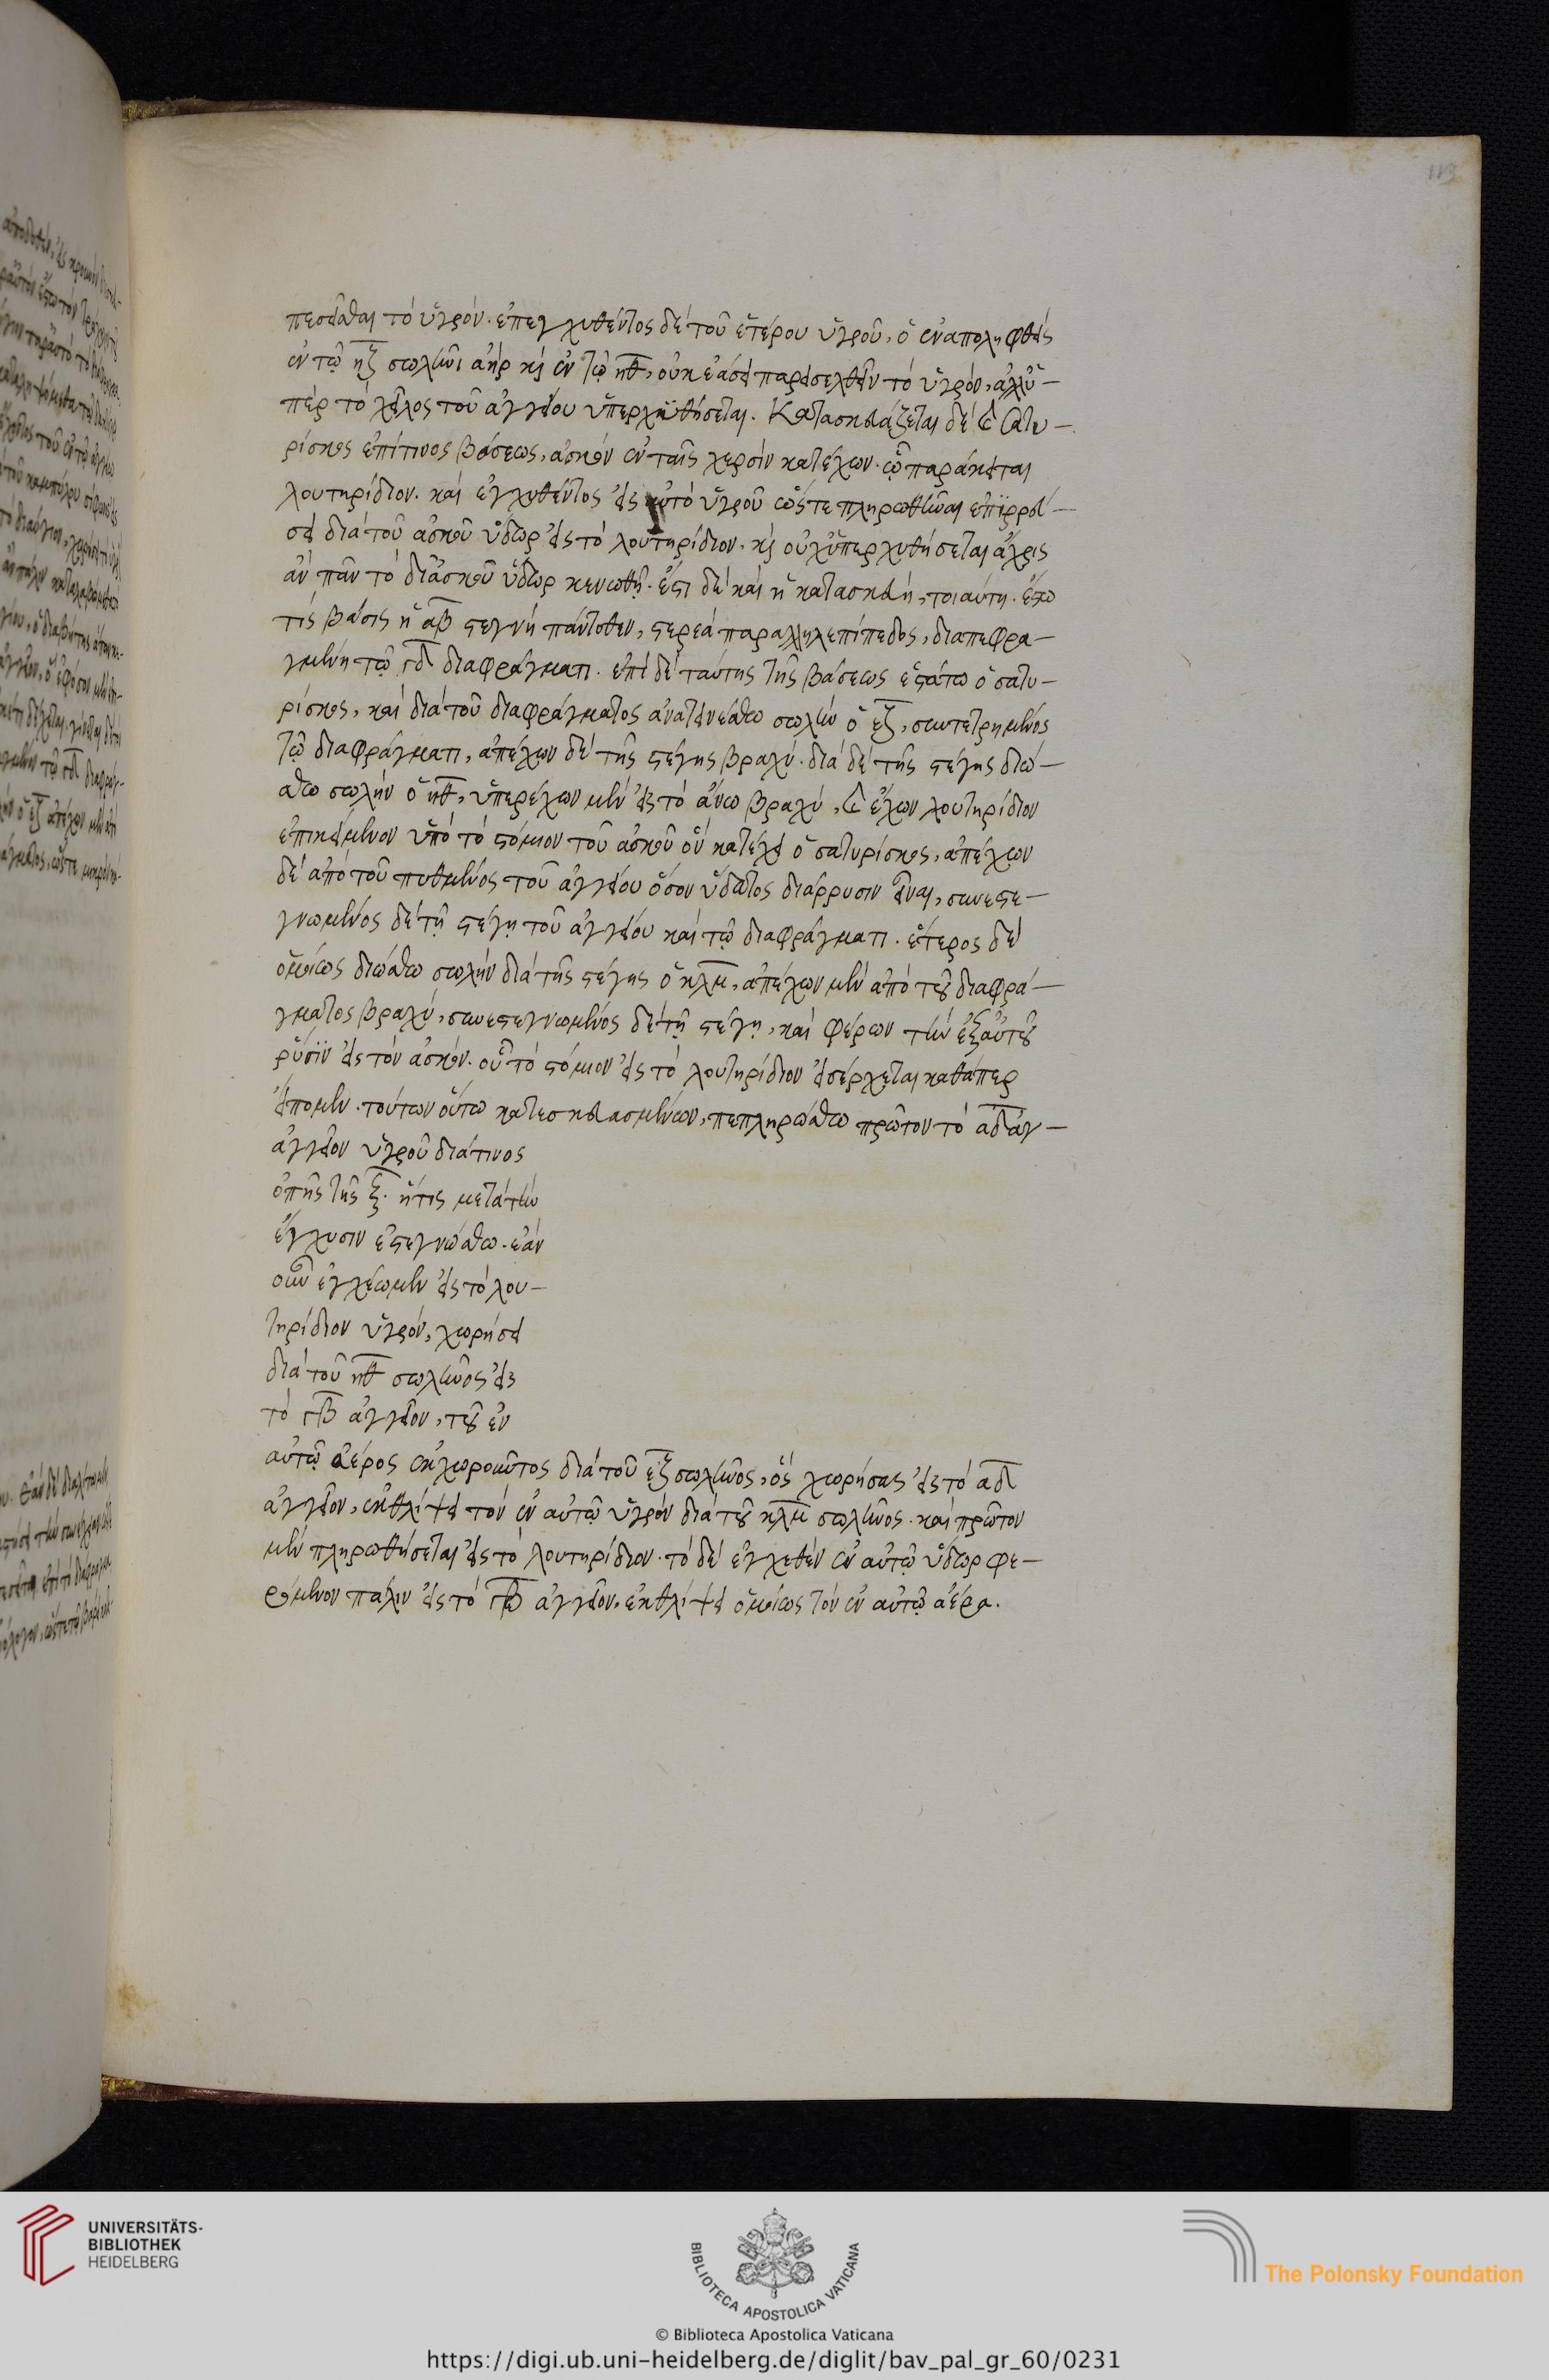 113
πεσεῖσθαι τὸ ὑγρόν. ἐπεγχυθέντος δὲ τοῦ ἑτέρου ὑγροῦ, ὁ ἐναποληφθεὶς
ἐν τῷ ηζ σωλῆνι ἀὴρ καὶ ἐν τῷ ηθ, οὐκ ἐάσει παρεισελθεῖν τὸ ὑγρόν, ἀλλ' ὑ-
πὲρ τὸ χεῖλος τοῦ ἀγγείου ὑπερχυθήσεται. Κατασκευάζεται δὲ καὶ σατυ-
ρίσκος ἐπί τινος βάσεως, ἀσκὸν ἐν ταῖς χερσὶν κατέχων. ᾧ παράκειται
λουτηρίδιον. καὶ ἐγχυθέντος εἰς αὐτὸ ὑγροῦ ὥστε πληρωθῆναι ἐπιρρεύ-
σει διὰ τοῦ ἀσκοῦ ὕδωρ εἰς τὸ λουτηρίδιον. καὶ οὐχ ὑπερχυθήσεται ἄχρις
ἂν πᾶν τὸ δι' ἀσκοῦ ὕδωρ κενωθῇ. ἔστι δὲ καὶ ἡ κατασκευὴ, τοιαύτη. ἔστω
τὶς βάσις ἡ αβ στεγνὴ πάντοθεν, στερεὰ παραλληλεπίπεδος, διαπεφρα-
γμένη τῷ γδ διαφράγματι. ἐπὶ δὲ ταύτης τῆς βάσεως ἑστάτω ὁ σατυ-
ρίσκος, καὶ διὰ τοῦ διαφράγματος ἀνατεινέσθω σωλὴν ὁ εζ, συντετρημένος
τῷ διαφράγματι, ἀπέχων δὲ τῆς στέγης βραχύ. διὰ δὲ τῆς στέγης διώ-
σθω σωλὴν ὁ ηθ, ὑπερέχων μὲν εἰς τὸ ἄνω βραχύ, καὶ ἔχων λουτηρίδιον
ἐπικείμενον ὑπὸ τὸ στόμιον τοῦ ἀσκοῦ ὃν κατέχει ὁ σατυρίσκος, ἀπέχων
δὲ ἀπὸ τοῦ πυθμένος τοῦ ἀγγείου ὅσον ὕδατος διάρρυσιν εἶναι, συνεστε-
γνωμένος δὲ τῇ στέγῃ τοῦ ἀγγείου καὶ τῷ διαφράγματι. ἕτερος δὲ
ὁμοίως διώσθω σωλὴν διὰ τῆς στέγης ὁ κλμ, ἀπέχων μὲν ἀπὸ τοῦ διαφρά-
γματος βραχύ, συνεστεγνωμένος δὲ τῇ στέγῃ, καὶ φέρων τὴν ἐξ αὐτοῦ
ῥύσιν εἰς τὸν ἀσκόν. οὗ τὸ στόμιον εἰς τὸ λουτηρίδιον εἰσέρχεται καθάπερ
εἴπομεν. τούτων οὕτω κατεσκευασμένων, πεπληρώσθω πρῶτον τὸ αδ ἀγ-
αγγεῖον ὑγροῦ διά τινος
ὀπῆς τῆς ξ. ἥτις μετὰ τὴν
ἔγχυσιν ἐστεγνώσθω. ἐὰν
οὖν ἐγχέωμεν εἰς τὸ λου-
τηρίδιον ὑγρόν, χωρήσει
διὰ τοῦ ηθ σωλῆνος εἰς
τὸ γβ ἀγγεῖον, τοῦ ἐν
αὐτῷ ἀέρος ἐκχωροῦντος διὰ τοῦ εζ σωλῆνος, ὃς χωρήσας εἰς τὸ αδ
ἀγγεῖον, ἐκθλίψει τὸν ἐν αὐτῷ ὑγρὸν διὰ τοῦ κλμ σωλῆνος. καὶ πρῶτον
μὲν πληρωθήσεται εἰς τὸ λουτηρίδιον. τὸ δὲ ἐγχεθὲν ἐν αὐτῷ ὕδωρ φε-
ρόμενον πάλιν εἰς τὸ γβ ἀγγεῖον, ἐκθλίψει ὁμοίως τὸν ἐν αὐτῷ ἀέρα.
UNIVERSITÄTS-
BIBLIOTHEK
HEIDELBERG
BIBLIOTECA APOSTOLICA VATICANA
The Polonsky Foundation
© Biblioteca Apostolica Vaticana
https://digi.ub.uni-heidelberg.de/diglit/bav_pal_gr_60/0231